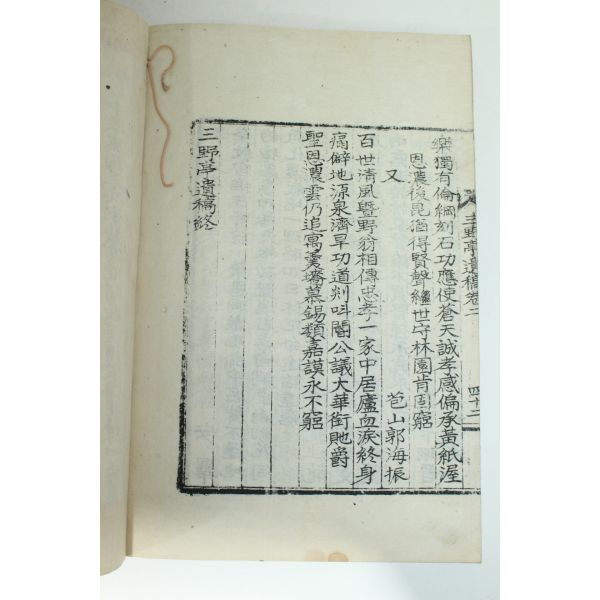 三野亭遺稿卷二
四十二
樂獨有倫綱刻石功應使蒼天誠孝感偏承黃紙渥
恩濃後昆猶得賢聲繼世守林園肯固窮
又
苞山郭海振
百世清風暨野翁相傳忠孝一家中居廬血淚終身
痛僻地源泉濟旱功道剡呌閽公議大華銜貤爵
聖恩濃雲仍追寓羹齋慕錫類嘉謨永不窮
三野亭遺稿終